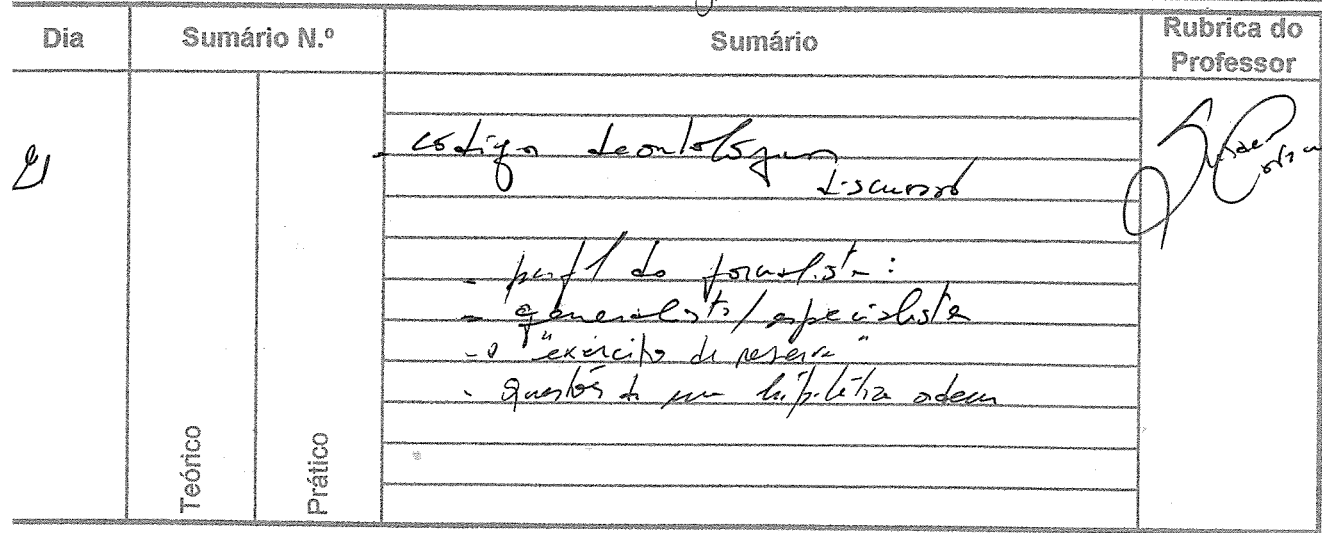 Dia Sumário N.º Sumário Rubrica do Professor
21
- código deontológico
discussão
- perfil do jornalista:
- generalista/especialista
- o "exército de reserva"
- questões de uma hipotética ordem
Teórico
Prático